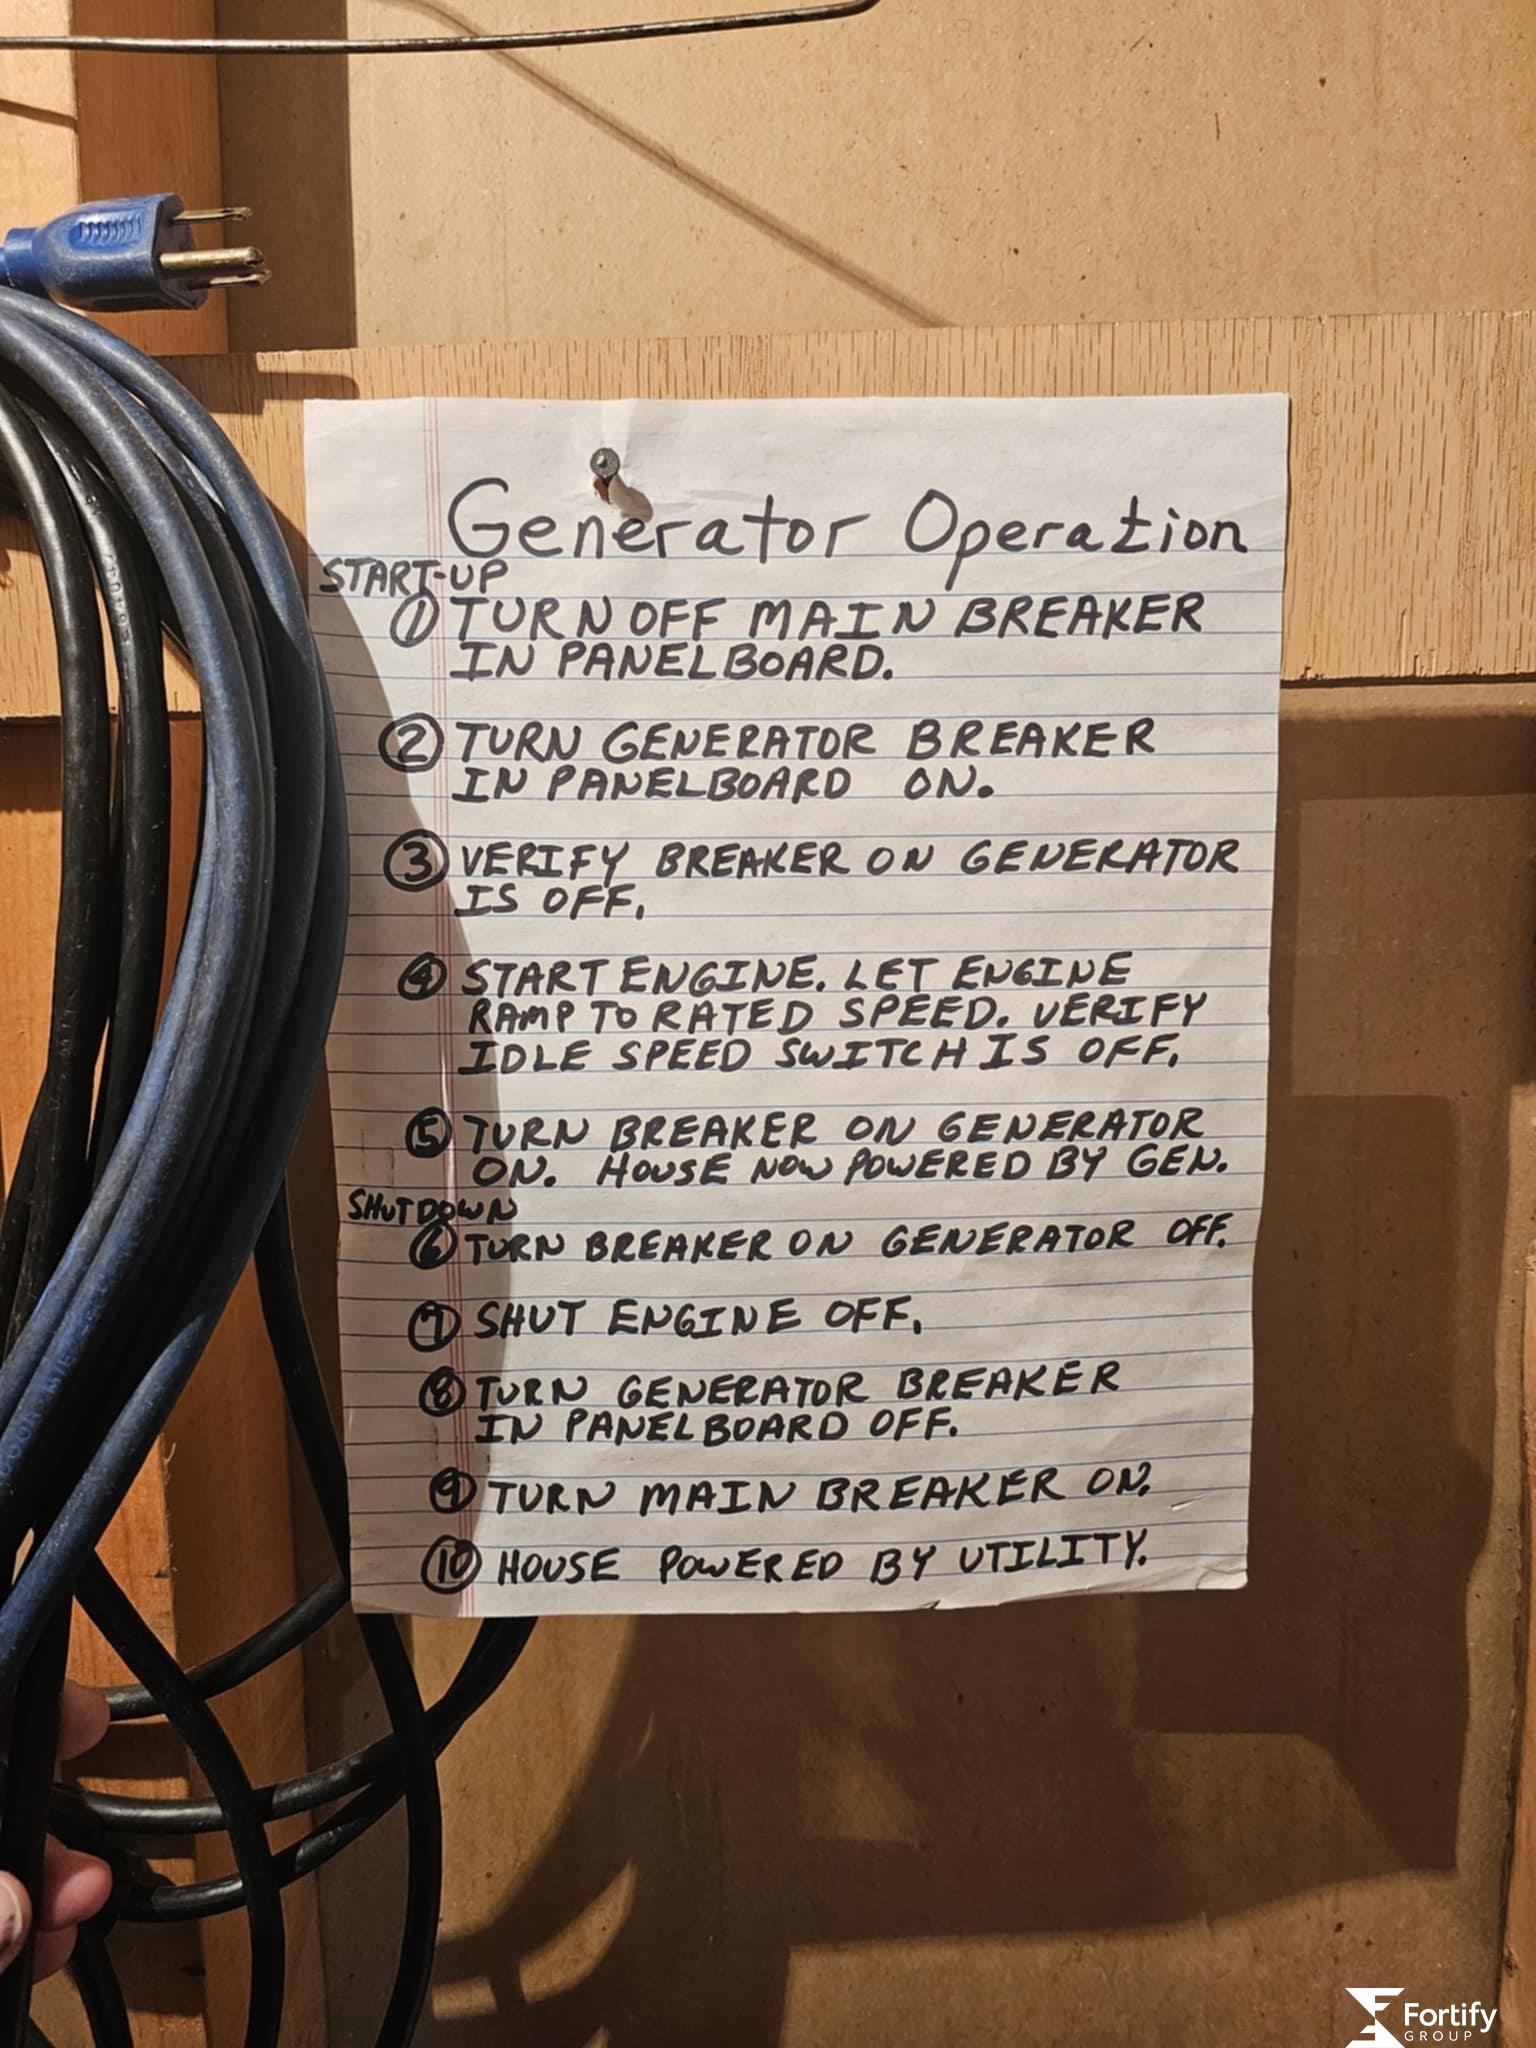 Generator Operation
START-UP
1 TURN OFF MAIN BREAKER
IN PANELBOARD.
2 TURN GENERATOR BREAKER
IN PANELBOARD ON.
3 VERIFY BREAKER ON GENERATOR
IS OFF.
4 START ENGINE. LET ENGINE
RAMP TO RATED SPEED. VERIFY
IDLE SPEED SWITCH IS OFF.
5 TURN BREAKER ON GENERATOR
ON. HOUSE NOW POWERED BY GEN.
SHUTDOWN
6 TURN BREAKER ON GENERATOR OFF.
7 SHUT ENGINE OFF.
8 TURN GENERATOR BREAKER
IN PANELBOARD OFF.
9 TURN MAIN BREAKER ON.
10 HOUSE POWERED BY UTILITY.
Fortify
GROUP